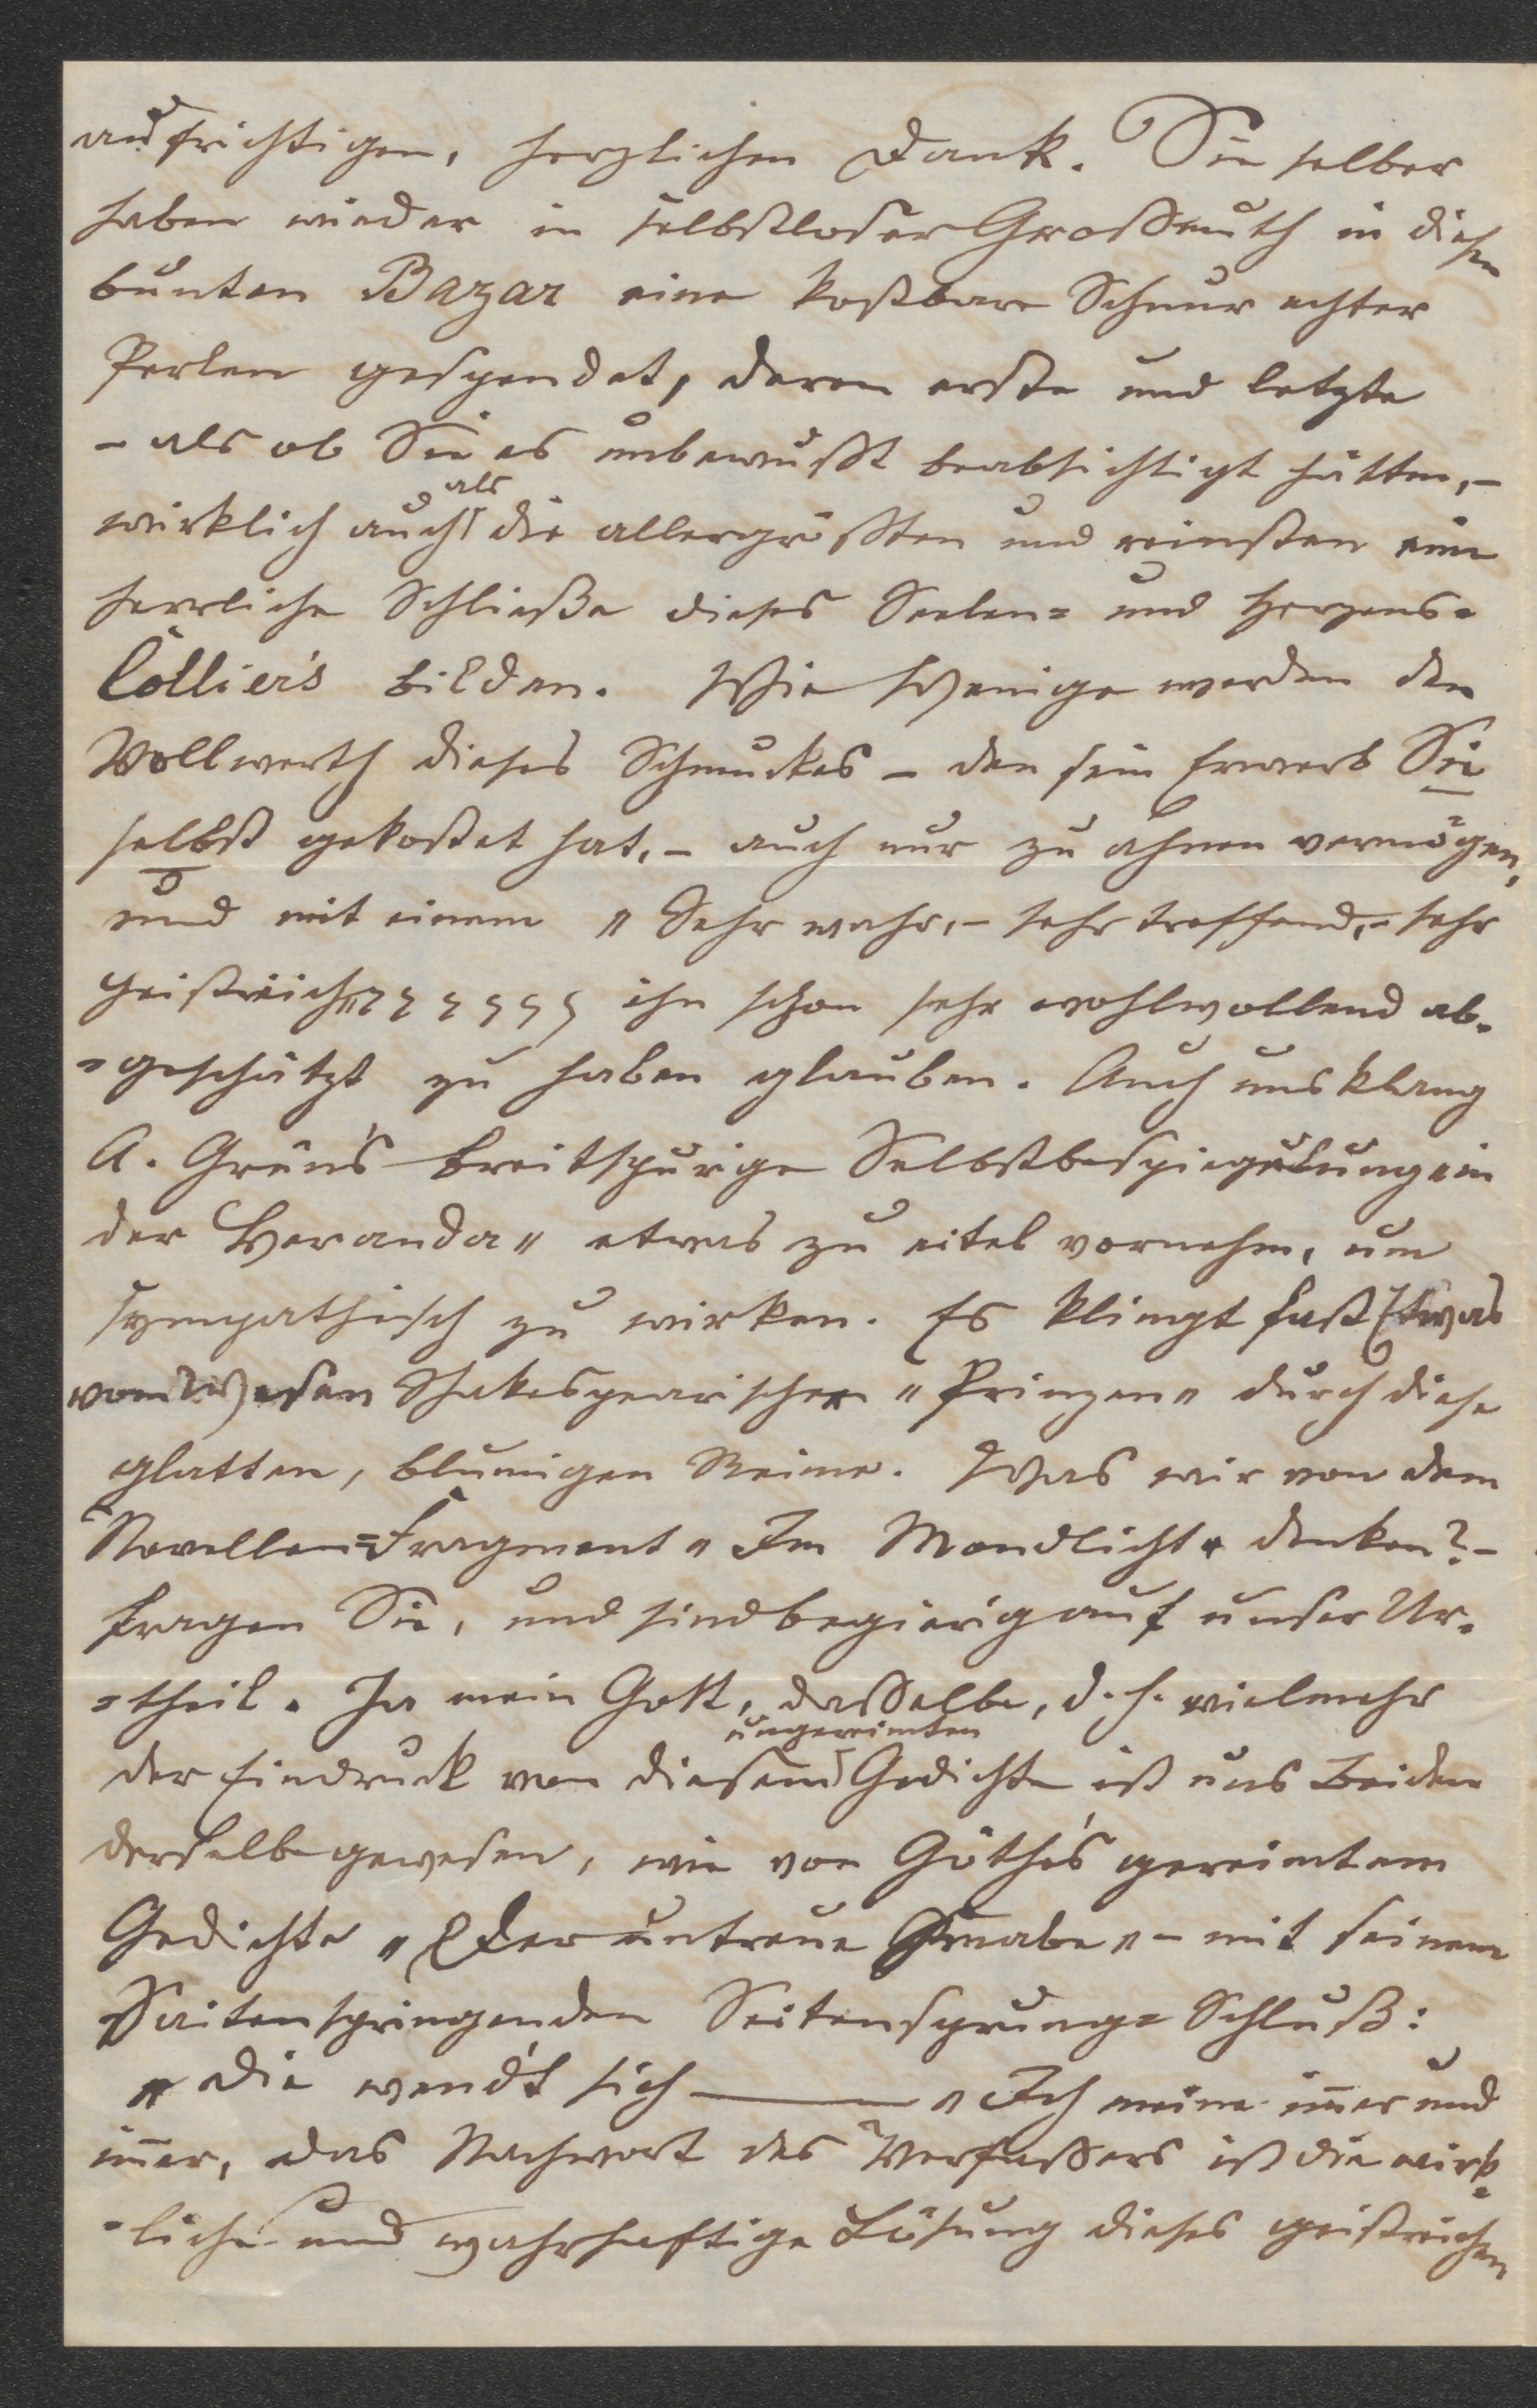 aufrichtigen, herzlichen Dank. Sie selber
haben wieder in selbstloser Großmuth in diesen
bunten Bazar eine kostbare Schnur echter
Perlen gespendet, deren erste und letzte
– als ob Sie es unbewußt beabsichtigt hätten, –
als
wirklich auch die allergrößten und reinsten eine
herrliche Schließe dieses Seelen= und Herzens=
Collier's bilden. Wie Wenige werden den
Vollwerth dieses Schmuckes – den sein Erwerb Sie
selbst gekostet hat, – auch nur zu ahnen vermögen,
und mit einem „Sehr wahr, – sehr treffend, – sehr
geistreich" ihn schon sehr wohlwollend ab=
=geschätzt zu haben glauben. Auch uns klang
A. Grün's breitspurige Selbstbespiegelung „in
der Veranda" etwas zu eitel vornehm, um
sympathisch zu wirken. Es klingt fast Etwas
vom Wesen Shakespearischer „Prinzen" durch diese
glatten, blumigen Reime. Was wir von dem
Novellen=Fragment „Im Mondlicht" denken? –
fragen Sie, und sind begierig auf unser Ur=
=theil. Ja mein Gott, dasselbe, d. h. vielmehr
ungereimten
der Eindruck von diesem Gedichte ist uns Beiden
derselbe gewesen, wie von Göthe's gereimtem
Gedichte „Der untreue Knabe" – mit seinem
Saitenspringenden Seitensprung= Schluß:
„die wend't sich ——— " Ich meine im̅er und
im̅er, das Nachwort des Verfassers ist die wirk=
=liche und wahrhaftige Lösung dieses geistreichen